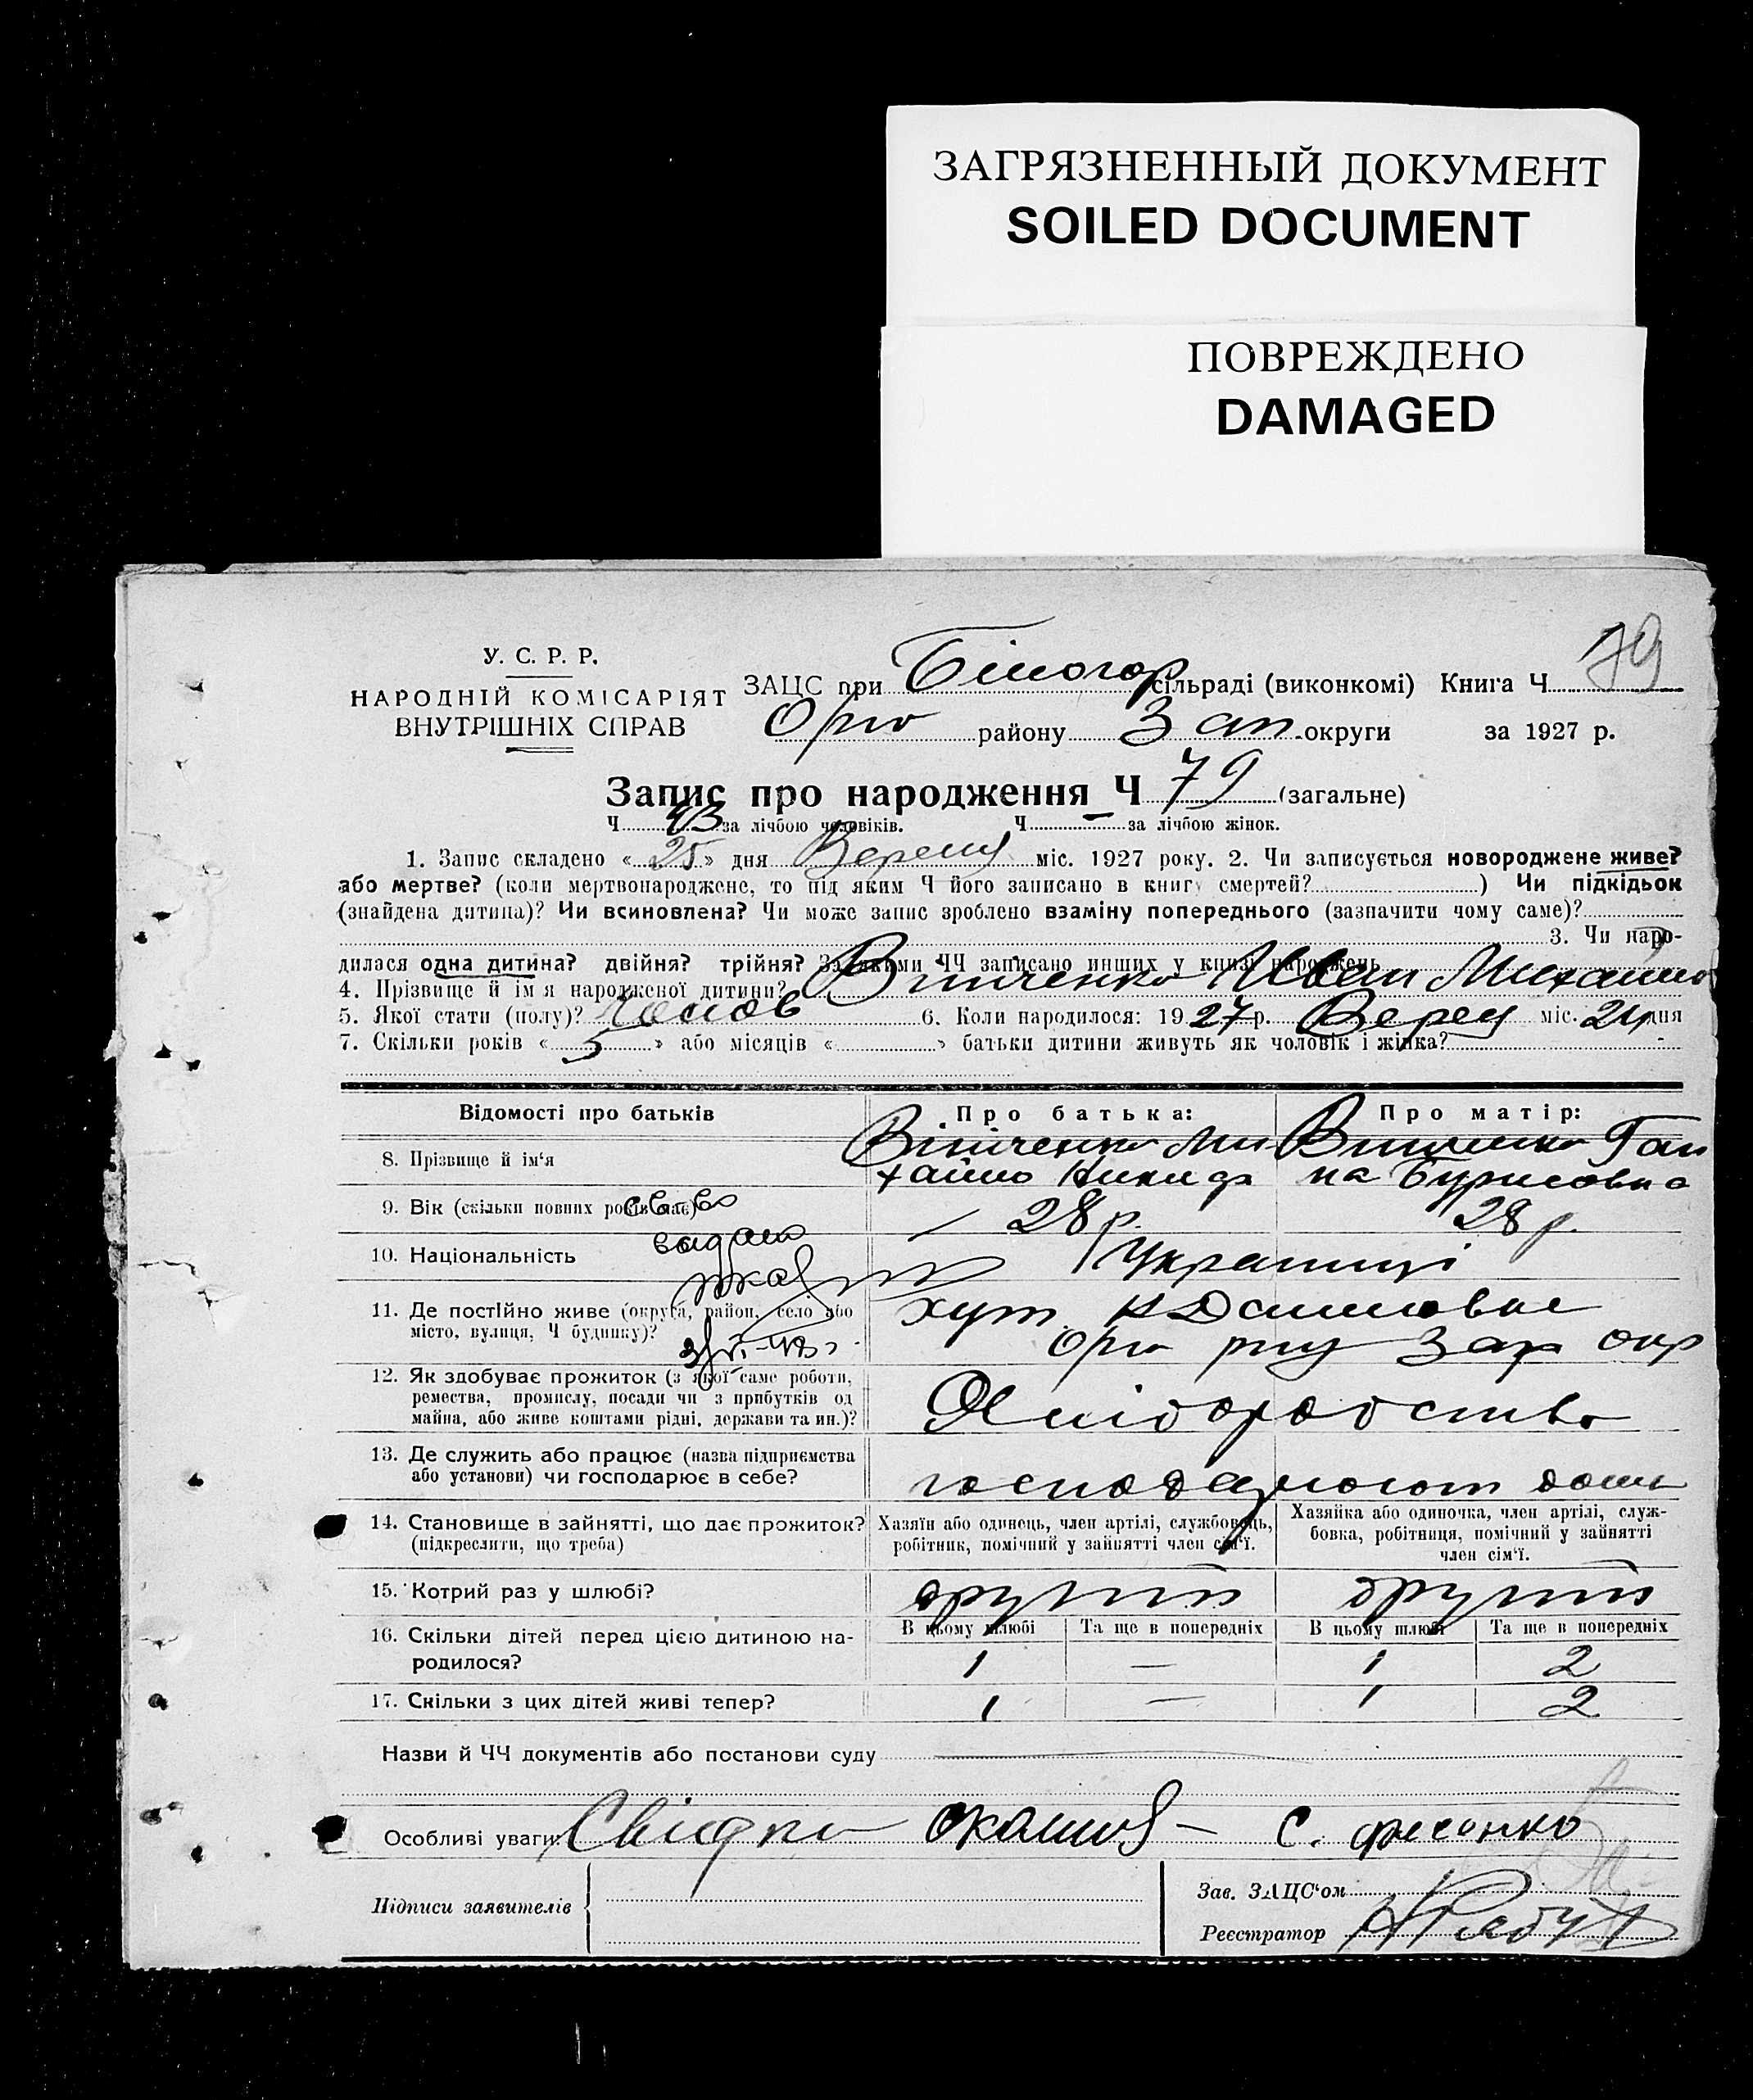 ЗАГРЯЗНЕННЫЙ ДОКУМЕНТ
SOILED DOCUMENT
ПОВРЕЖДЕНО
DAMAGED
79
У. С. Р. Р.
НАРОДНІЙ КОМІСАРІЯТ
ВНУТРІШНІХ СПРАВ
ЗАЦС при Білогор сільраді (виконкомі) Книга Ч.
Оріх району Зап. округи за 1927 р.
Запис про народження Ч 79 (загальне)
Ч 43 за лічбою чоловіків. Ч — за лічбою жінок.
1. Запис складено « 25 » дня Вересня міс. 1927 року. 2. Чи записується новороджене живе?
або мертве? (коли мертвонароджене, то під яким Ч його записано в книгу смертей? ) Чи підкідьок
(знайдена дитина)? Чи всиновлена? Чи може запис зроблено взаміну попереднього (зазначити чому саме)?
3. Чи наро-
дилася одна дитина? двійня? трійня? За якими ЧЧ записано инших у книзі народжень
4. Прізвище й ім'я народженої дитини? Вітченко Иван Михайло
5. Якої стати (полу)? Чолов 6. Коли народилося: 1927 р. Верес міс. 24 дня
7. Скільки років « 5 » або місяців « » батьки дитини живуть як чоловік і жінка?
Відомості про батьків Про батька: Про матір:
8. Прізвище й ім'я Вітченко Ми Вітченко Ган
хайло Никиф на Бурисовна
9. Вік (скільки повних років має) 28 р. 28 р.
видано
10. Національність Українці
11. Де постійно живе (округа, район, село або
місто, вулиця, Ч будинку)?
хут.
Зап окр
12. Як здобуває прожиток (з якої саме роботи,
ремества, промислу, посади чи з прибутків од
майна, або живе коштами рідні, держави та ин.)?
Хліборобство
13. Де служить або працює (назва підприємства
або установи) чи господарює в себе?
господарюют дома
14. Становище в зайнятті, що дає прожиток?
(підкреслити, що треба)
Хазяїн або одинець, член артілі, службовець,
робітник, помічний у зайнятті член сім'ї.
Хазяйка або одиночка, член артілі, служ-
бовка, робітниця, помічний у зайнятті
член сім'ї.
15. Котрий раз у шлюбі? другий другий
16. Скільки дітей перед цією дитиною на-
родилося?
В цьому шлюбі Та ще в попередніх В цьому шлюбі Та ще в попередніх
1 — 1 2
17. Скільки з цих дітей живі тепер? 1 — 1 2
Назви й ЧЧ документів або постанови суду
Особливі уваги: С. Фесенко
Підписи заявителів
Зав. ЗАЦС'ом
Реєстратор